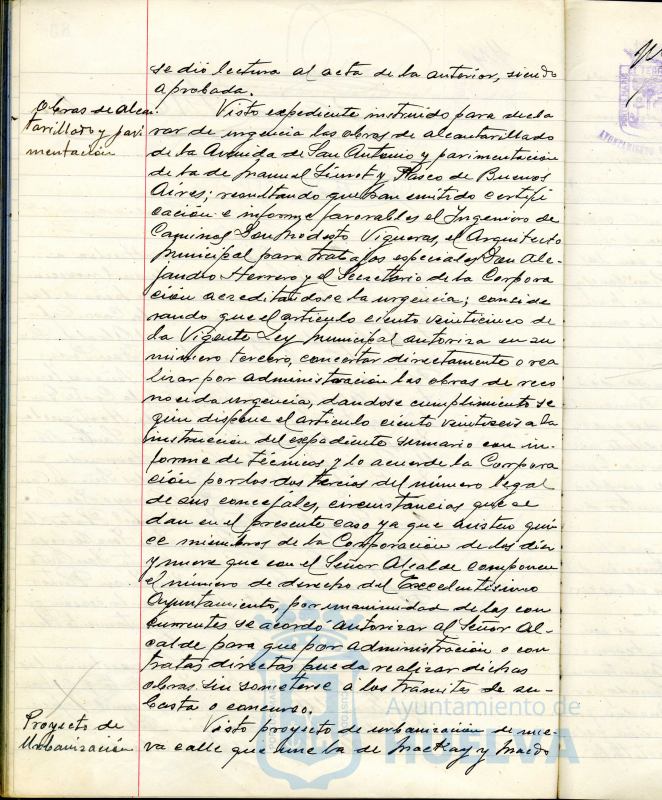 se dió lectura al acta de la anterior, siendo
aprobada.
Obras de alcan-
tarillado y pavi
mentación
Visto expediente instruido para decla
rar de urgencia las obras de alcantarillado
de la Avenida de San Antonio y pavimentación
de la de Manuel Siurot y Paseo de Buenos
Aires; resultando que han emitido certifi
cación e informe favorables el Ingeniero de
Caminos Don Modesto Vigueras, el Arquitecto
municipal para trabajos especiales Don Ale-
jandro Herrero y el Secretario de la Corpora
ción acreditandose la urgencia; conside
rando que el artículo ciento veinticinco de
la Vigente Ley Municipal autoriza en su
número tercero, concertar directamente o rea
lizar por administración las obras de reco
nocida urgencia, dandose cumplimiento se
gún dispone el artículo ciento veintiseis a la
instrucción del expediente sumario con in-
forme de técnicos y lo acuerde la Corpora
ción por los dos tercios del número legal
de sus concejales, circunstancias que se
dan en el presente caso ya que asisten quin
ce miembros de la Corporación de los diez
y nueve que con el Señor Alcalde componen
el número de derecho del Excelentísimo
Ayuntamiento, por unanimidad de los con
currentes se acordó autorizar al Señor Al-
calde para que por administración o con
tratas directas pueda realizar dichas
obras sin someterse a los tramites de su-
basta o concurso.
Proyecto de
Urbanización
Visto proyecto de urbanización de nue-
va calle que une la de Mackay y Macdo
Ayuntamiento de
HUELVA